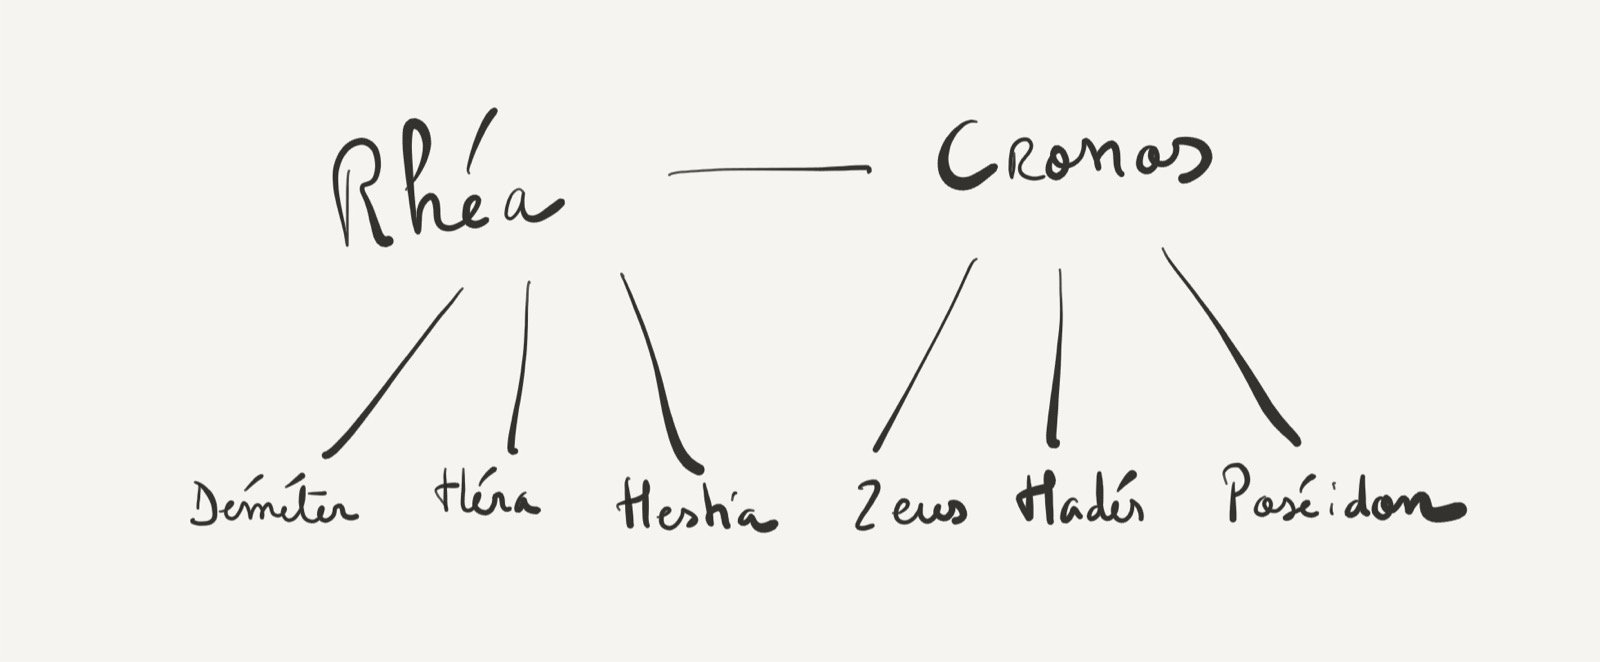 Rhéa Cronos
Déméter Héra Hestia Zeus Hadés Poséidon